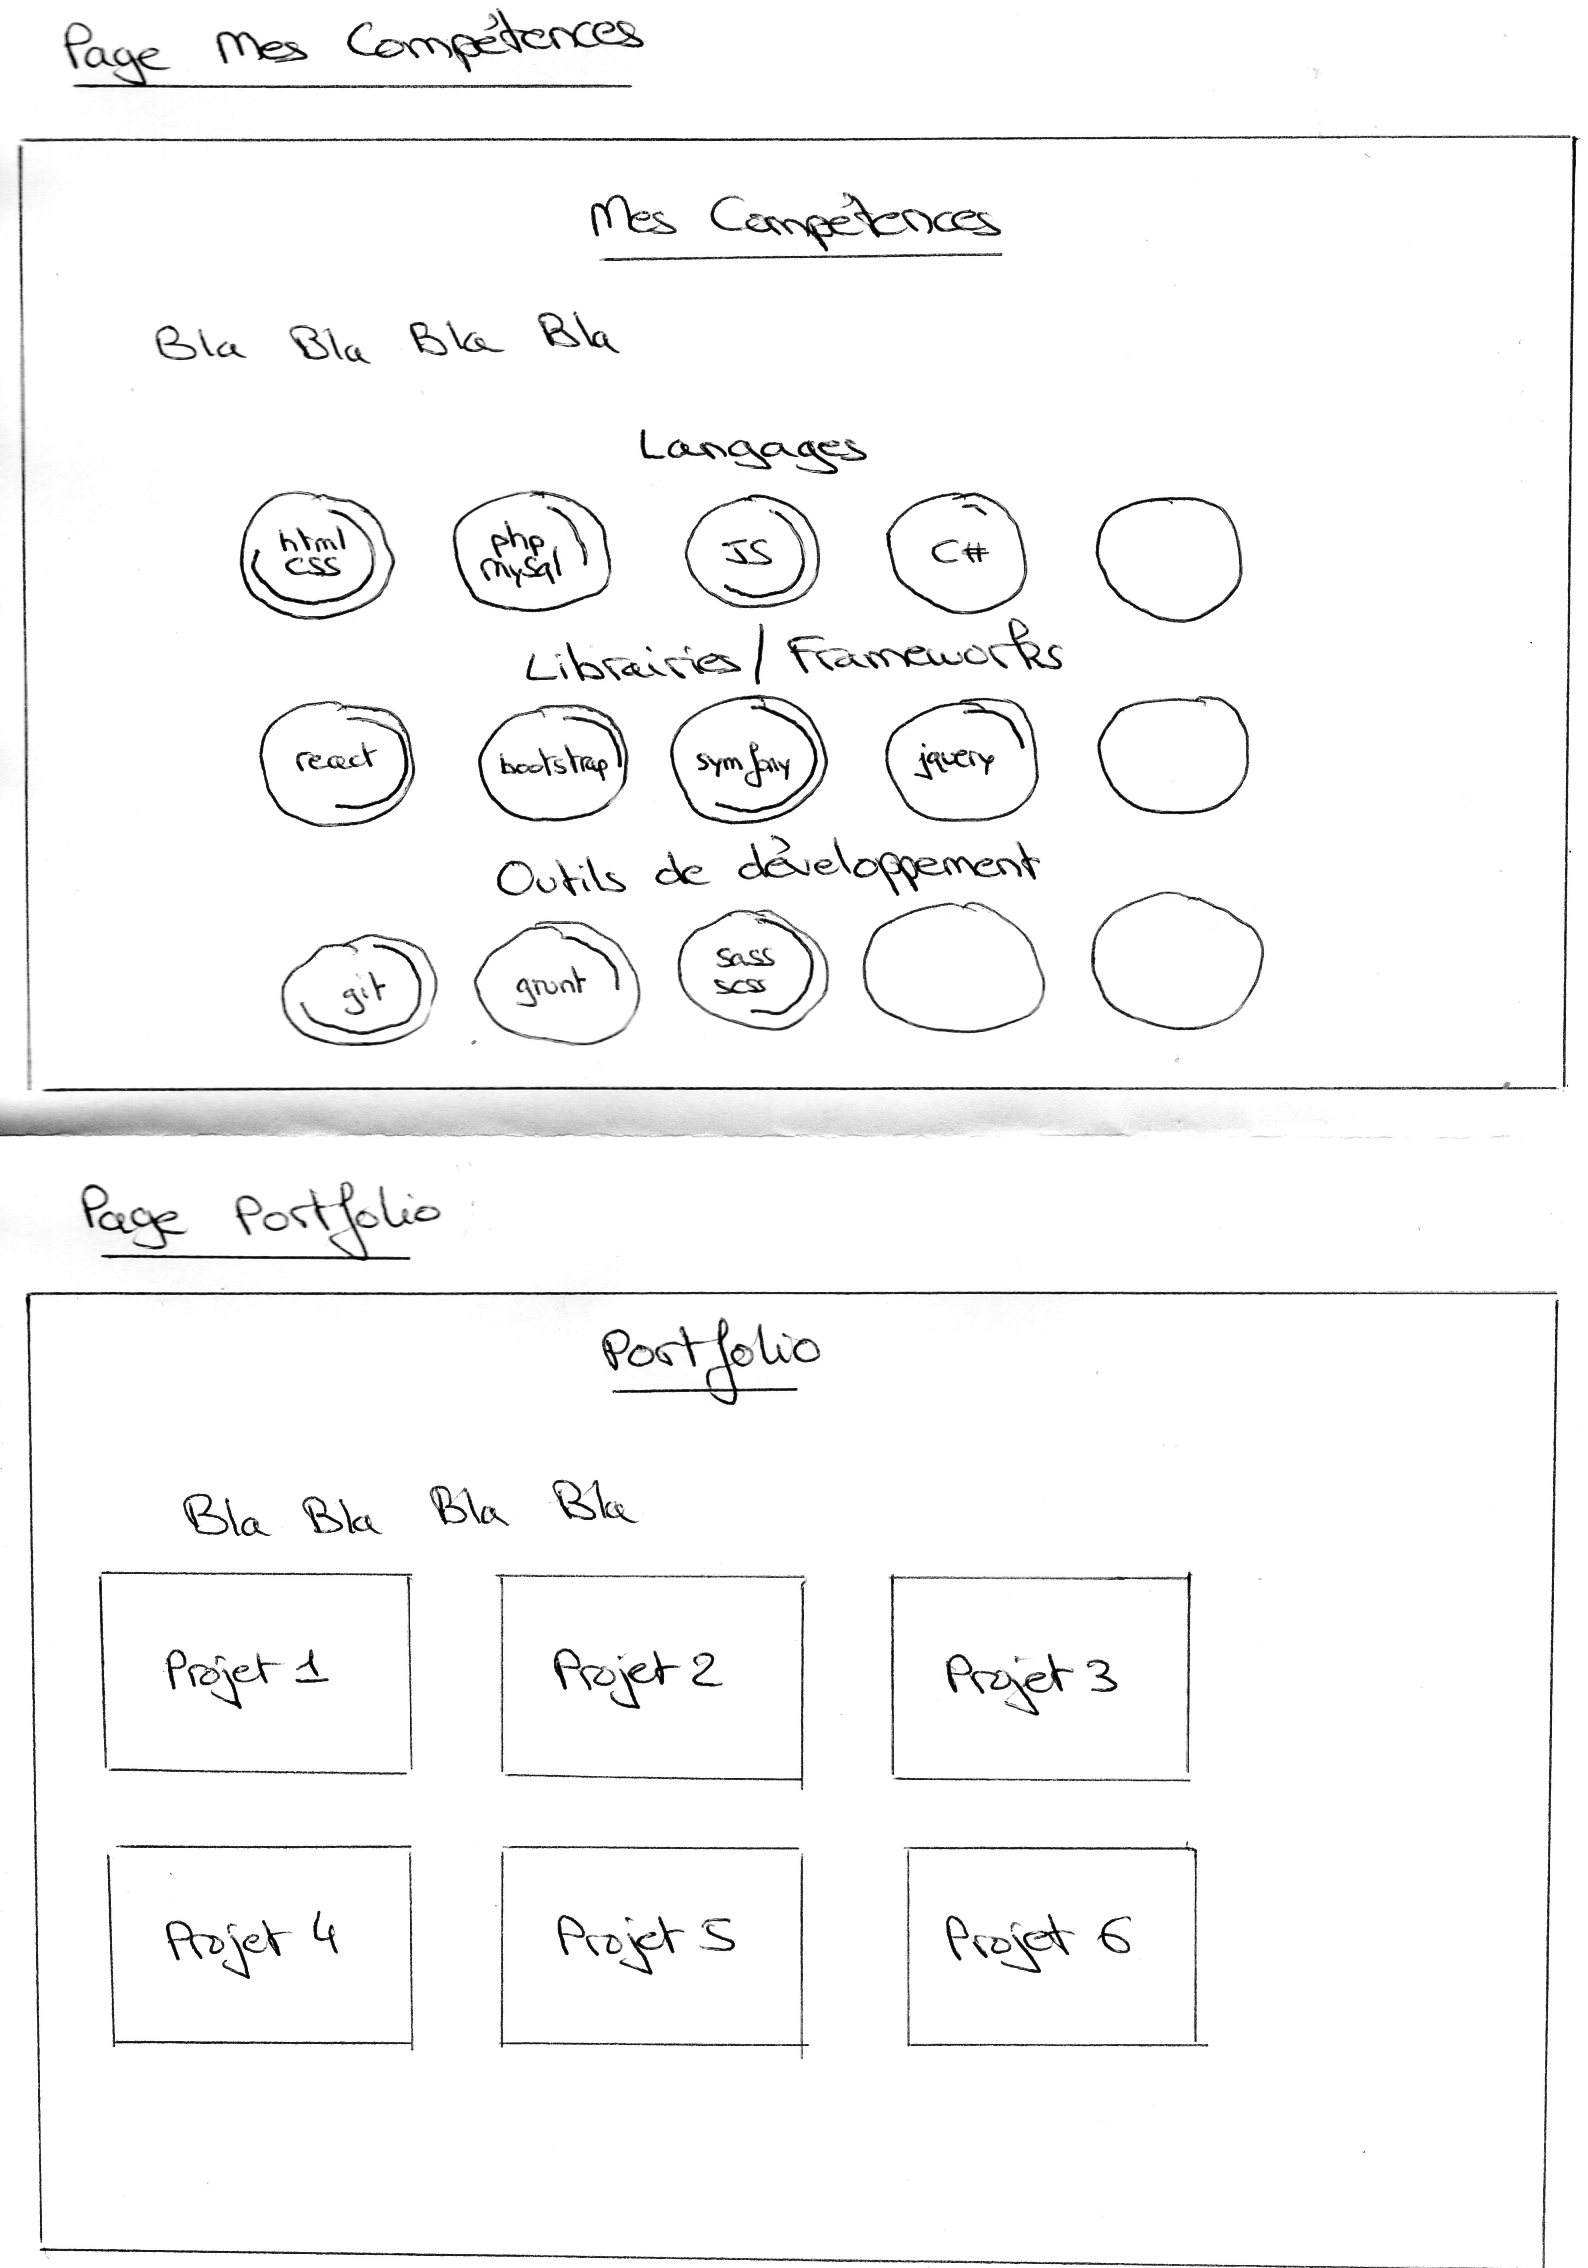 Page Mes Compétences
Mes Compétences
Bla Bla Bla Bla
Langages
html
css
php
mysql
JS
C#
Librairies / Frameworks
react
bootstrap
symfony
jquery
Outils de développement
git
grunt
sass
scss
Page Portfolio
Portfolio
Bla Bla Bla Bla
Projet 1
Projet 2
Projet 3
Projet 4
Projet 5
Projet 6